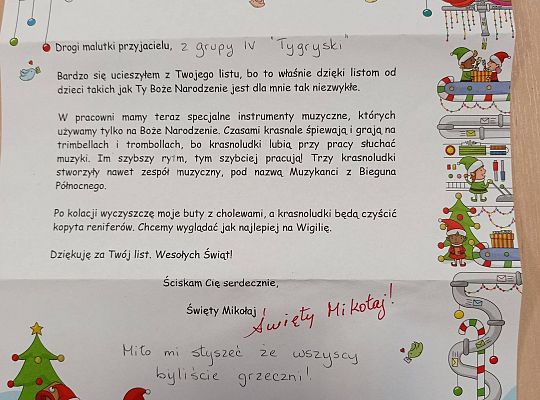 Drogi malutki przyjacielu, z grupy IV "Tygryski"
Bardzo się ucieszyłem z Twojego listu, bo to właśnie dzięki listom od
dzieci takich jak Ty Boże Narodzenie jest dla mnie tak niezwykłe.
W pracowni mamy teraz specjalne instrumenty muzyczne, których
używamy tylko na Boże Narodzenie. Czasami krasnale śpiewają i grają na
trimbellach i trombollach, bo krasnoludki lubią przy pracy słuchać
muzyki. Im szybszy rytm, tym szybciej pracują! Trzy krasnoludki
stworzyły nawet zespół muzyczny, pod nazwą Muzykanci z Bieguna
Północnego.
Po kolacji wyczyszczę moje buty z cholewami, a krasnoludki będą czyścić
kopyta reniferów. Chcemy wyglądać jak najlepiej na Wigilię.
Dziękuję za Twój list. Wesołych Świąt!
Ściskam Cię serdecznie,
Święty Mikołaj Święty Mikołaj!
Miło mi słyszeć że wszyscy
byliście grzeczni!